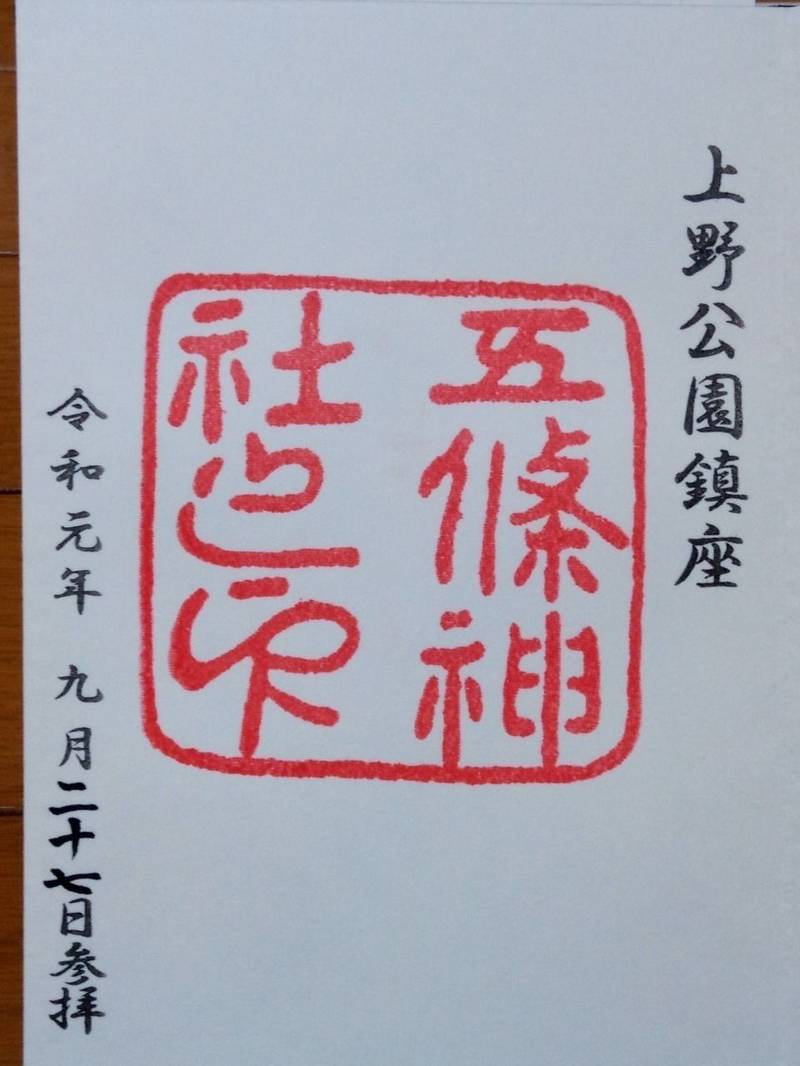 上野公園鎮座
五條神
社之印
令和元年 九月二十七日参拝